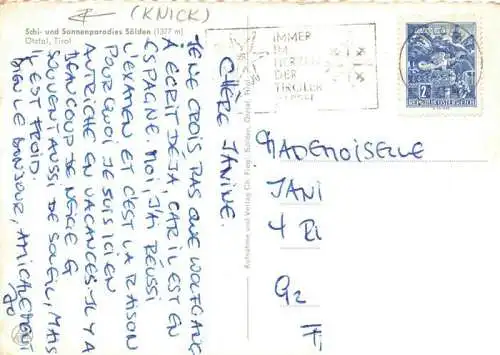 (KNICK)
Schi- und Sonnenparadies Sölden (1377 m)
Ötztal, Tirol
IMMER
IM
HERZEN
DER
TIROLER
2
REPUBLIK ÖSTERREICH
CHÈRE JANINE.
JE NE CROIS PAS QUE WOLFGANG
À ÉCRIT DÉJA, CAR IL EST EN
ESPAGNE. MOI, J'AI RÉUSSI
L'EXAMEN ET C'EST LA RAISON
POURQUOI JE SUIS ICI EN
AUTRICHE EN VACANCES. IL Y A
BEAUCOUP DE NEIGE &
SOUVENT AUSSI DE SOLEIL, MAIS
IL EST FROID.
BIEN LE BONJOUR, AMICALEMENT
JO
Aufnahme und Verlag Ch. Sölden, Ötztal, Tirol
MADEMOISELLE
JANI
4 RI
G2
F